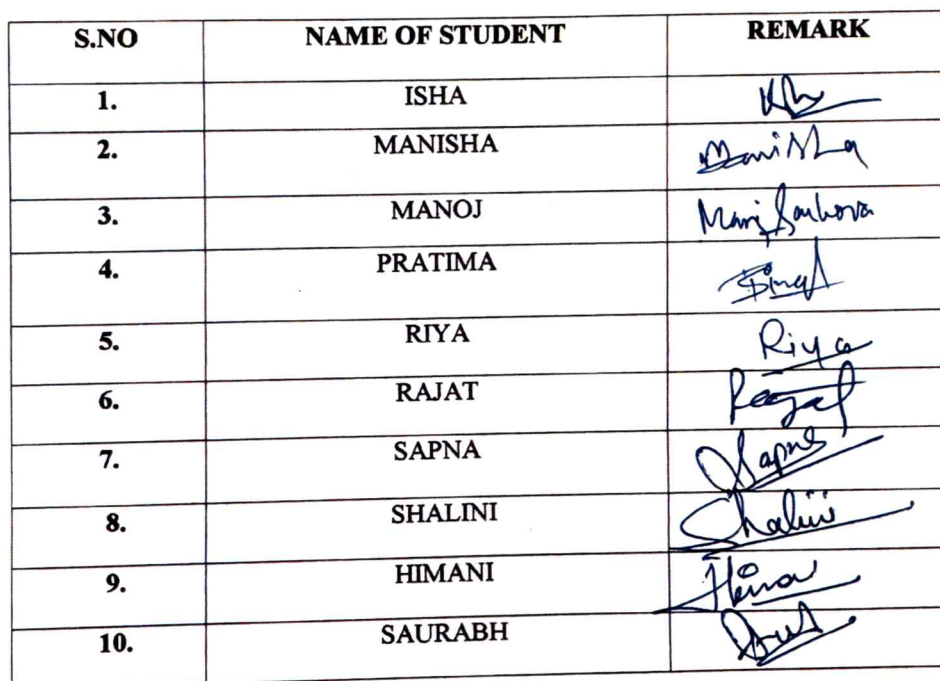 S.NO NAME OF STUDENT REMARK
1. ISHA
2. MANISHA Manisha
3. MANOJ
4. PRATIMA Singh
5. RIYA Riya
6. RAJAT Rajat
7. SAPNA Sapna
8. SHALINI Shalini
9. HIMANI
10. SAURABH